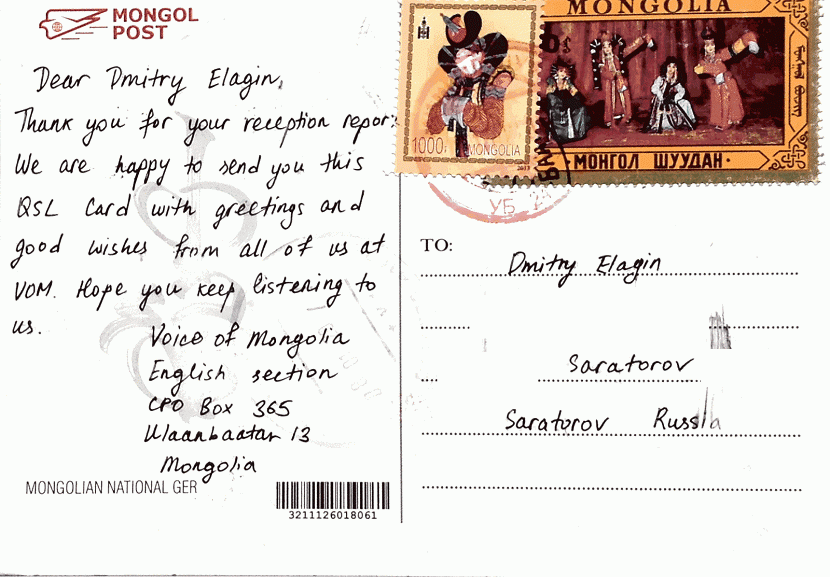 MONGOL
POST
Dear Dmitry Elagin,
Thank you for your reception report.
We are happy to send you this
QSL Card with greetings and
good wishes from all of us at
VOM. Hope you keep listening to
us.
Voice of Mongolia
English section
CPO Box 365
Ulaanbaatar 13
Mongolia
MONGOLIAN NATIONAL GER
3211126018061
1000₮
MONGOLIA
MONGOLIA
·МОНГОЛ ШУУДАН·
УБ
TO:
Dmitry Elagin
Saratorov
Saratorov Russia